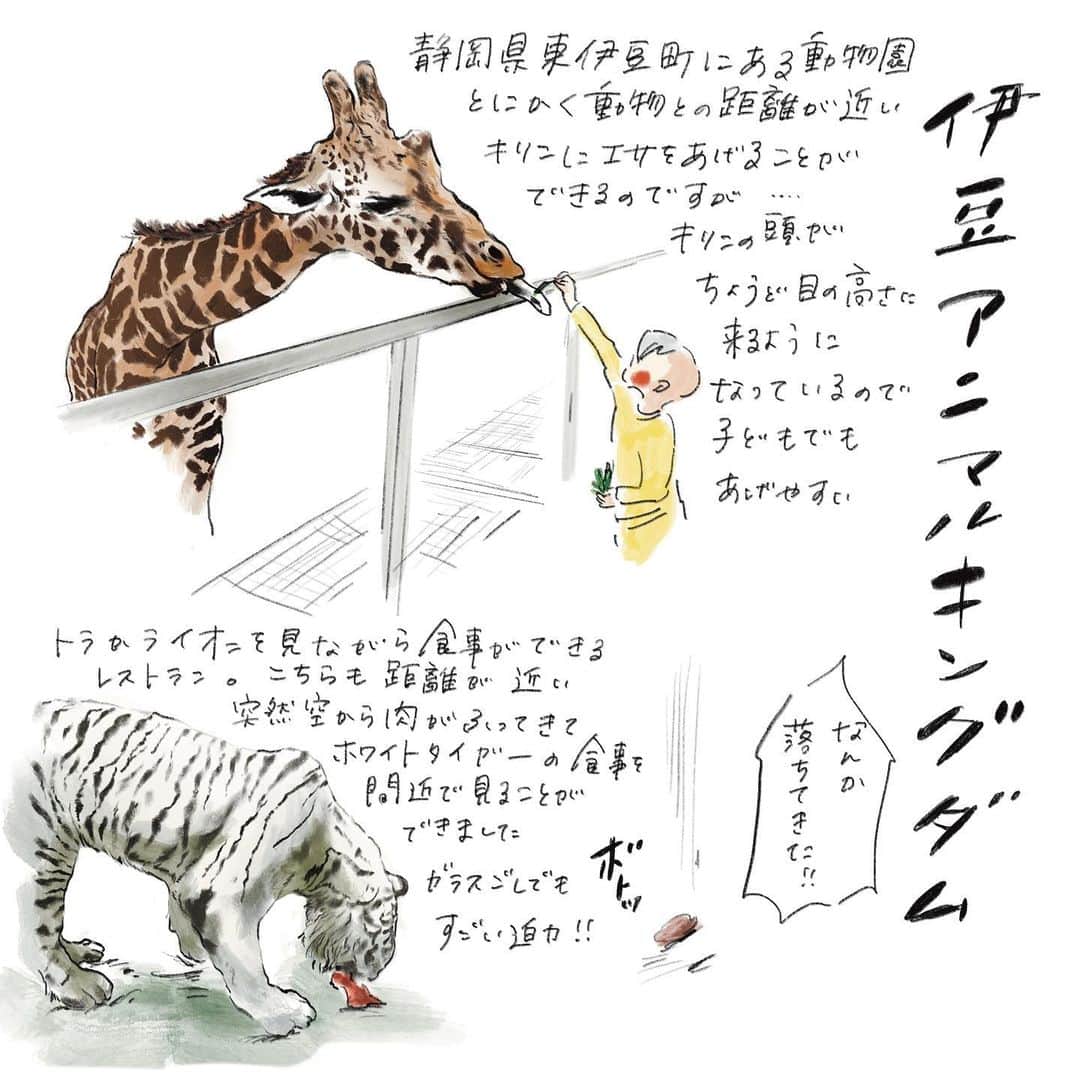 伊豆アニマルキングダム
静岡県東伊豆町にある動物園
とにかく動物との距離が近い
キリンにエサをあげることが
できるのですが‥‥
キリンの頭が
ちょうど目の高さに
来るように
なっているので
子どもでも
あげやすい
トラかライオンを見ながら食事ができる
レストラン。こちらも距離が近い
突然空から肉がふってきて
ホワイトタイガーの食事を
間近で見ることが
できました
ガラスごしでも
すごい迫力!!
ボトッ
なんか
落ちてきた!!